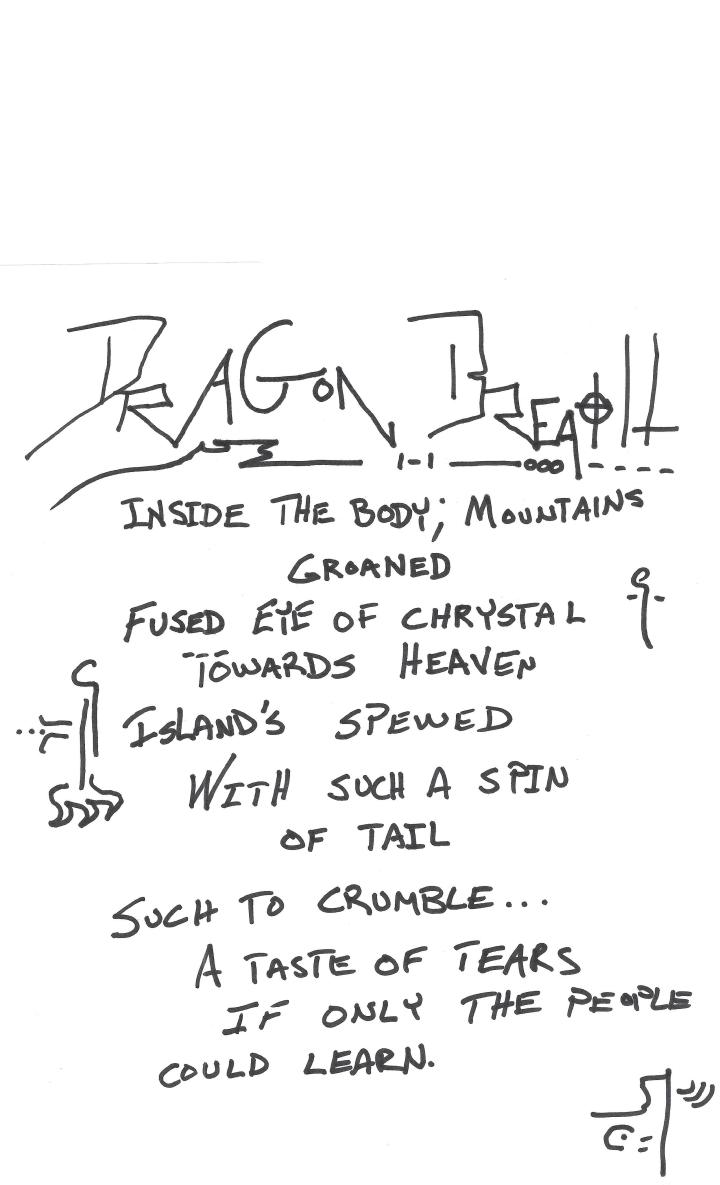 DRAGON BREATH
INSIDE THE BODY; MOUNTAINS
GROANED
FUSED EYE OF CHRYSTAL
TOWARDS HEAVEN
ISLAND'S SPEWED
WITH SUCH A SPIN
OF TAIL
SUCH TO CRUMBLE...
A TASTE OF TEARS
IF ONLY THE PEOPLE
COULD LEARN.